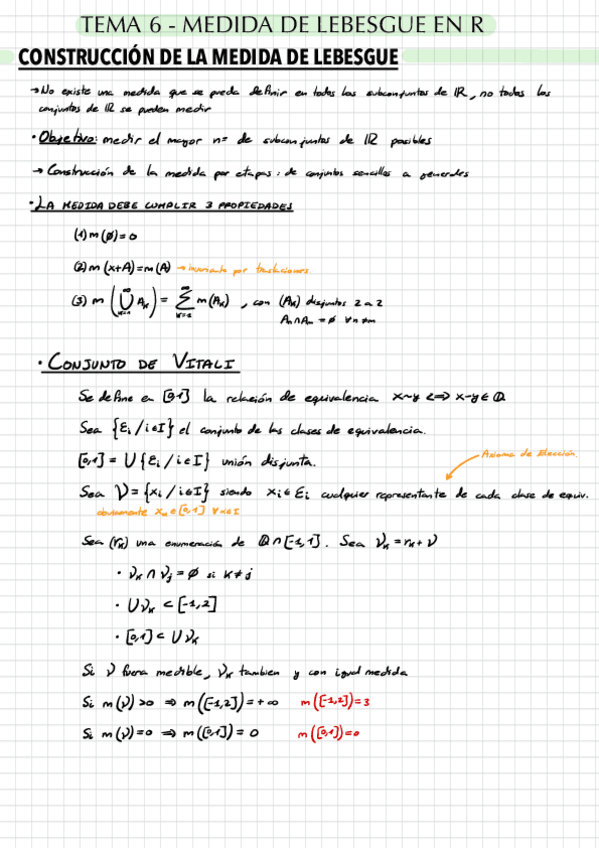 TEMA 6 - MEDIDA DE LEBESGUE EN R
CONSTRUCCIÓN DE LA MEDIDA DE LEBESGUE
→ No existe una medida que se pueda definir en todos los subconjuntos de ℝ, no todos los
conjuntos de ℝ se pueden medir
· Objetivo: medir el mayor nº de subconjuntos de ℝ posibles
→ Construcción de la medida por etapas: de conjuntos sencillos a generales
· LA MEDIDA DEBE CUMPLIR 3 PROPIEDADES
(1) m(∅)=0
(2) m(x+A)=m(A) → invariante por traslaciones
(3) m(⋃_{k=1}^{∞} A_k) = ∑_{k=1}^{∞} m(A_k), con (A_k) disjuntos 2 a 2
A_n∩A_m = ∅ ∀n≠m
· CONJUNTO DE VITALI
Se define en [0,1] la relación de equivalencia x~y <=> x-y∈ℚ
Sea {Ɛi / i∈I} el conjunto de las clases de equivalencia.
[0,1] = U{Ɛi / i∈I} unión disjunta.
Axioma de Elección.
Sea V={xi / i∈I} siendo xi∈Ɛi cualquier representante de cada clase de equiv.
obviamente x_k∈[0,1] ∀k∈I
Sea (r_k) una enumeración de ℚ∩[-1,1]. Sea V_k=r_k+V
· V_k ∩ V_j = ∅ si k≠j
· UV_k ⊂ [-1,2]
· [0,1] ⊂ UV_k
Si V fuera medible, V_k tambien y con igual medida
Si m(V)>0 ⇒ m([-1,2])=+∞ m([-1,2])=3
Si m(V)=0 ⇒ m([0,1])=0 m([0,1])=0